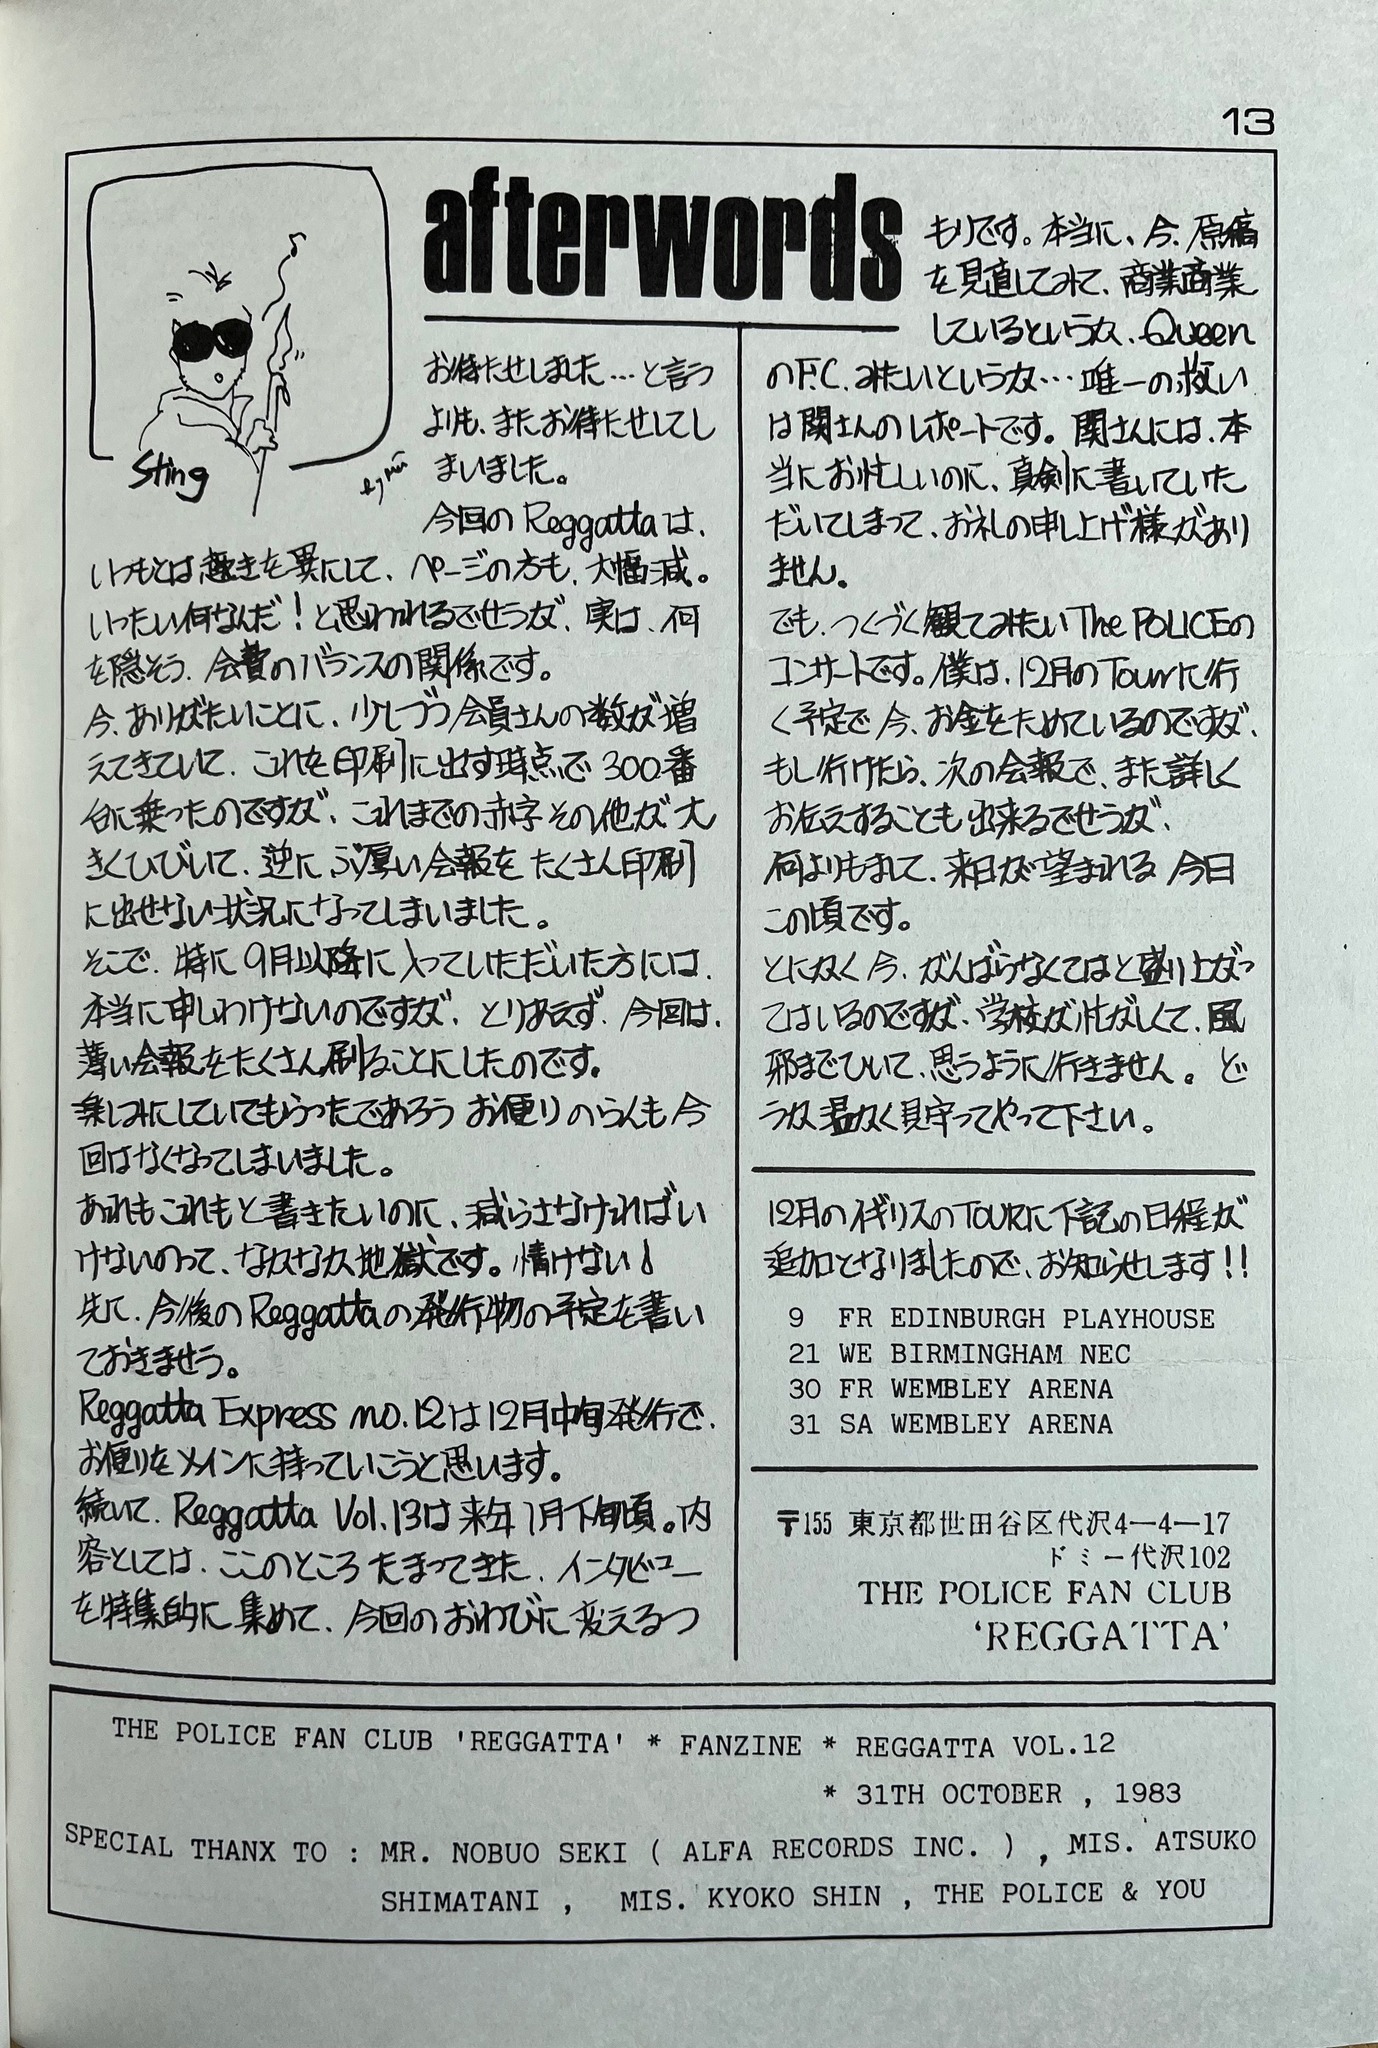 13
afterwords
Sting
お待たせしました…と言う
よりも、またお待たせしてし
まいました。
今回の Reggattaは、
いつもとは趣きを異にして、ページの方も、大幅減。
いったい何なんだ！と思われるでせうが、実は、何
を隠そう、会費のバランスの関係です。
今、ありがたいことに、少しづつ会員さんの数が増
えてきていて、これを印刷に出す時点で 300番
台に乗ったのですが、これまでの赤字その他が大
きくひびいて、逆に ぶ厚い会報を たくさん印刷
に出せない状況になってしまいました。
そこで、特に 9月以降に入っていただいた方には、
本当に申しわけないのですが、とりあえず、今回は、
薄い会報をたくさん刷ることにしたのです。
楽しみにしていてもらったであろう お便りのらんも今
回はなくなってしまいました。
あれもこれもと書きたいのに、減らさなければい
けないのって、なかなか地獄です。情けない！
先に、今後のReggattaの発行物の予定を書い
ておきませう。
Reggatta Express no.12は12月中旬発行で、
お便りをメインに持っていこうと思います。
続いて、Reggatta Vol.13は来年1月下旬頃。内
容としては、ここのところ たまってきた、インタビュー
を特集的に集めて、今回のおわびに変えるつ
もりです。本当に、今、原稿
を見直してみて、商業商業
しているというか、Queen
のF.C.みたいというか…唯一の救い
は関さんのレポートです。関さんには、本
当にお忙しいのに、真剣に書いていた
だいてしまって、お礼の申し上げ様があり
ません。
でも、つくづく観てみたいThe POLICEの
コンサートです。僕は、12月のTourに行
く予定で今、お金をためているのですが、
もし行けたら、次の会報で、また詳しく
お伝えすることも出来るでせうが、
何よりもまして、来日が望まれる今日
この頃です。
とにかく今、がんばらなくてはと盛り上がっ
てはいるのですが、学校が忙がしくて、風
邪までひいて、思うように行きません。ど
うか温かく見守ってやって下さい。
12月のイギリスのTOURに下記の日程が
追加となりましたので、お知らせします!!
9 FR EDINBURGH PLAYHOUSE
21 WE BIRMINGHAM NEC
30 FR WEMBLEY ARENA
31 SA WEMBLEY ARENA
〒155 東京都世田谷区代沢4ー4ー17
ドミー代沢102
THE POLICE FAN CLUB
'REGGATTA'
THE POLICE FAN CLUB 'REGGATTA' * FANZINE * REGGATTA VOL.12
* 31TH OCTOBER , 1983
SPECIAL THANX TO : MR. NOBUO SEKI ( ALFA RECORDS INC. ) , MIS. ATSUKO
SHIMATANI , MIS. KYOKO SHIN , THE POLICE & YOU